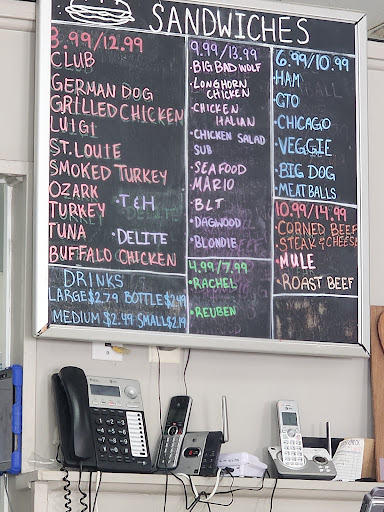 SANDWICHES
3.99/12.99
CLUB
GERMAN DOG
GRILLED CHICKEN
LUIGI
ST. LOUIE
SMOKED TURKEY
OZARK
TURKEY
TUNA
BUFFALO CHICKEN
• T & H
• DELITE
DRINKS
LARGE $2.79 BOTTLE $2.49
MEDIUM $2.49 SMALL $2.19
9.99/13.99
• BIG BAD WOLF
• LONGHORN
CHICKEN
• CHICKEN
ITALIAN
• CHICKEN SALAD
SUB
• SEAFOOD
• MARIO
• BLT
• DAGWOOD
• BLONDIE
4.99/7.99
• RACHEL
• REUBEN
6.99/10.99
• HAM
• GTO
• CHICAGO
• VEGGIE
• BIG DOG
• MEATBALLS
10.99/14.99
• CORNED BEEF
• STEAK & CHEESE
• MULE
• ROAST BEEF
AT&T